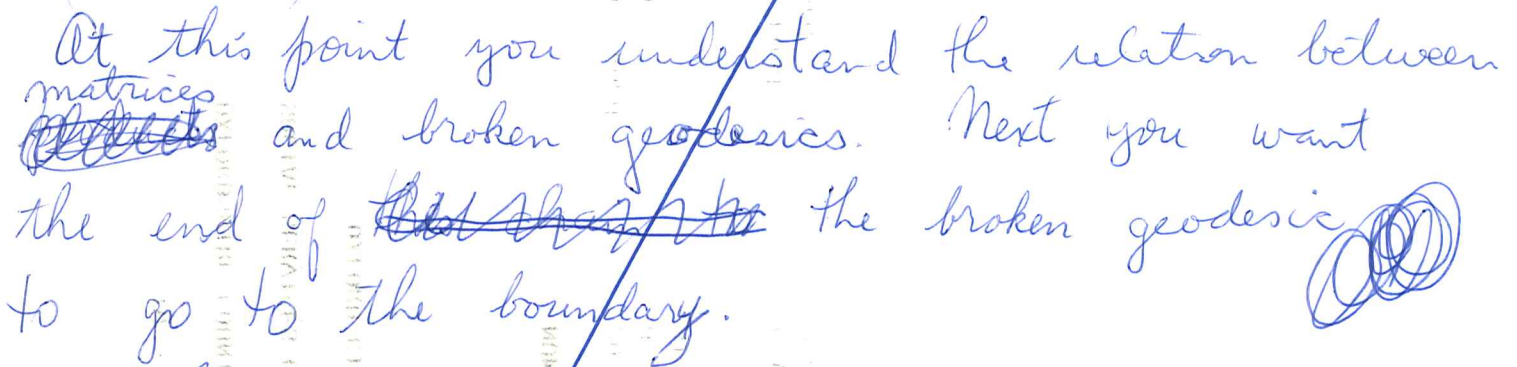 At this point you understand the relation between
matrices
and broken geodesics. Next you want
the end of the broken geodesic
to go to the boundary.